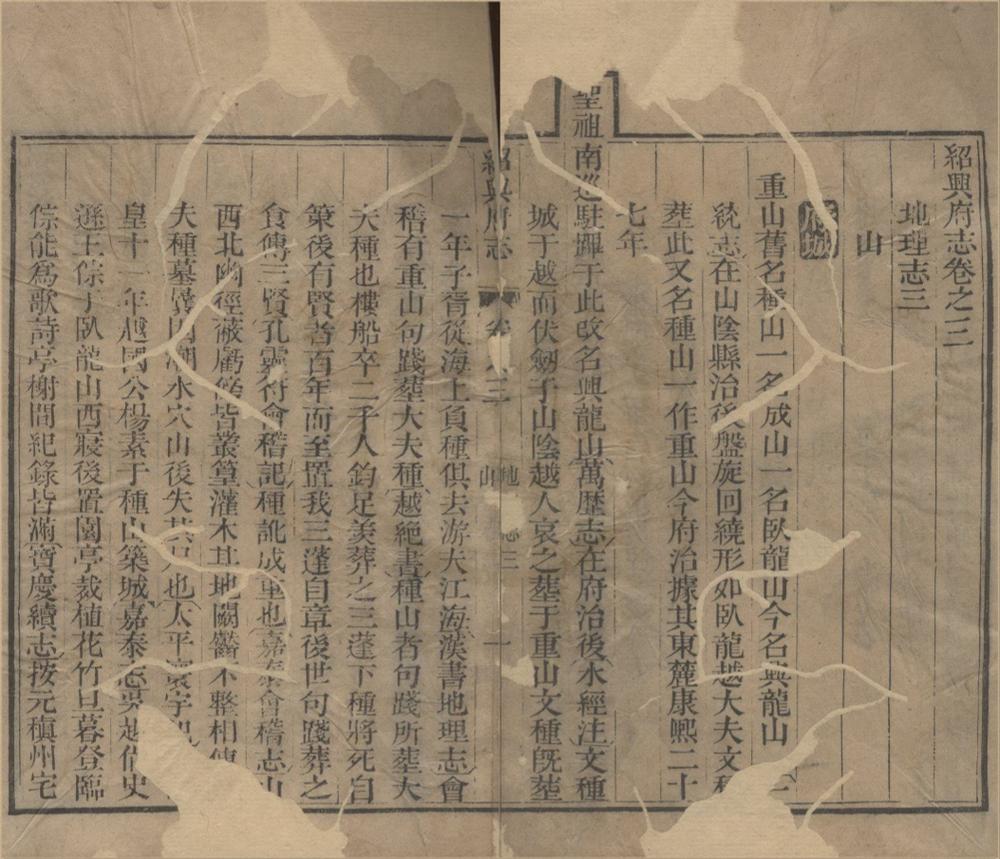 紹興府志卷之三
地理志三
山
府城
重山舊名種山一名成山一名臥龍山今名興龍山一
統志在山陰縣治後盤旋回繞形如臥龍越大夫文種
塟此又名種山一作重山今府治據其東麓康熙二十
七年
聖祖南巡駐蹕于此改名興龍山萬歷志在府治後水經注文種
城于越而伏劒于山陰越人哀之塟于重山文種旣塟
紹興府志 卷之三 地理志三 山 一
一年子胥從海上負種俱去游大江海漢書地理志會
稽有重山句踐塟大夫種越絶書種山者句踐所塟大
夫種也樓船卒二千人鈞足羨葬之三蓬下種將死自
策後有賢者百年而至置我三蓬自章後世句踐葬之
食傳三賢孔靈符會稽記種訛成重也嘉泰會稽志山
西北幽徑蔽虧皆叢篁灌木其地闕齾不整相傳
夫種墓㠔因潮水穴山後失其尸也太平寰宇記
皇十一年越國公楊素于種山築城嘉泰志吳越備史
遜王倧于臥龍山西寢後置園亭栽植花竹旦暮登臨
倧能爲歌詩亭榭間紀錄皆滿寶慶續志按元稹州宅